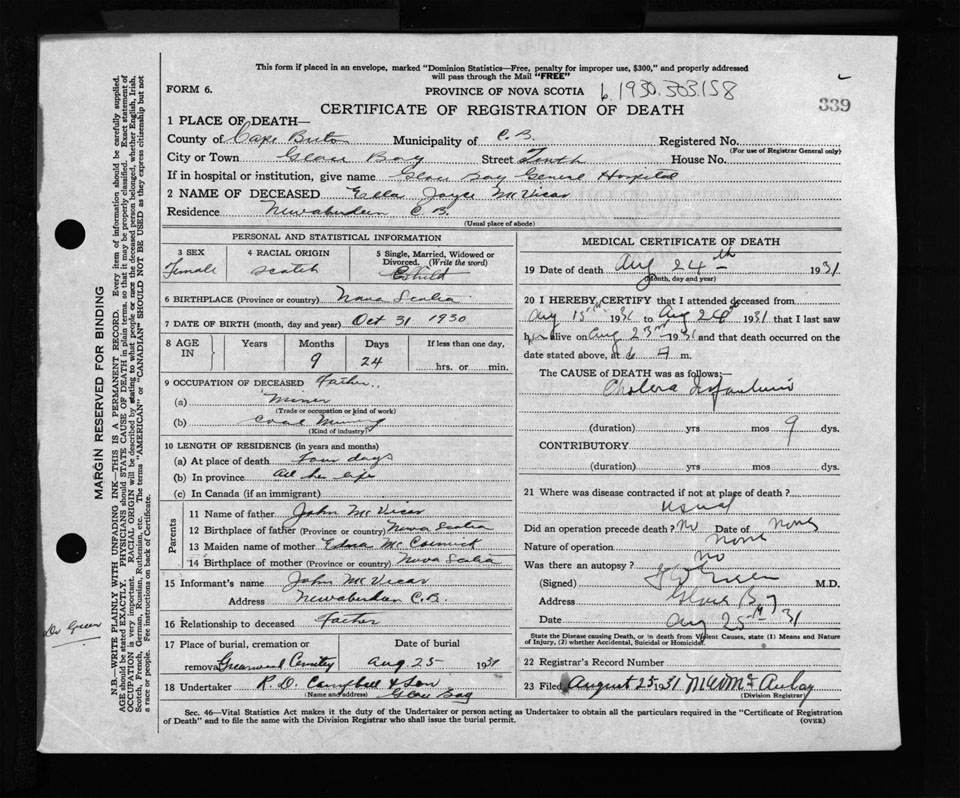 This form if placed in an envelope, marked "Dominion Statistics—Free, penalty for improper use, $300," and properly addressed
will pass through the Mail "FREE"
FORM 6.
PROVINCE OF NOVA SCOTIA b. 1930.303158
CERTIFICATE OF REGISTRATION OF DEATH
339
1 PLACE OF DEATH—
County of Cape Breton Municipality of C. B. Registered No.
(For use of Registrar General only)
City or Town Glace Bay Street Tenth House No.
If in hospital or institution, give name Glace Bay General Hospital
2 NAME OF DECEASED Ella Joyce McVicar
Residence Newaberdeen C. B.
(Usual place of abode)
PERSONAL AND STATISTICAL INFORMATION
3 SEX 4 RACIAL ORIGIN 5 Single, Married, Widowed or Divorced. (Write the word)
Female Scotch Child
6 BIRTHPLACE (Province or country) Nova Scotia
7 DATE OF BIRTH (month, day and year) Oct 31 1930
8 AGE IN Years Months Days If less than one day,
9 24 hrs. or min.
9 OCCUPATION OF DECEASED Father
(a) Miner
(Trade or occupation or kind of work)
(b) Coal Mining
(Kind of industry)
10 LENGTH OF RESIDENCE (in years and months)
(a) At place of death four days
(b) In province All her life
(c) In Canada (if an immigrant)
Parents
11 Name of father John McVicar
12 Birthplace of father (Province or country) Nova Scotia
13 Maiden name of mother Edna McCormick
14 Birthplace of mother (Province or country) Nova Scotia
15 Informant's name John McVicar
Address Newaberdeen C.B.
16 Relationship to deceased Father
17 Place of burial, cremation or Date of burial
removal Greenwood Cemetery Aug 25 1931
18 Undertaker R. D. Campbell & Son
(Name and address) Glace Bay
MEDICAL CERTIFICATE OF DEATH
19 Date of death Aug 24th 1931
(Month, day and year)
20 I HEREBY CERTIFY that I attended deceased from
Aug 15th 1931 to Aug 24 1931 that I last saw
her alive on Aug 23rd 1931 and that death occurred on the
date stated above, at 6 A m.
The CAUSE of DEATH was as follows:—
Cholera Infantum
(duration) yrs mos 9 dys.
CONTRIBUTORY
(duration) yrs mos dys.
21 Where was disease contracted if not at place of death?
usual
Did an operation precede death? No Date of none
Nature of operation none
Was there an autopsy? No
(Signed) Green M.D.
Address Glace Bay
Date Aug 25th 31
State the Disease causing Death, or in death from Violent Causes, state (1) Means and Nature
of Injury, (2) whether Accidental, Suicidal or Homicidal.
22 Registrar's Record Number
23 Filed August 25 1931
(Division Registrar)
Sec. 46—Vital Statistics Act makes it the duty of the Undertaker or person acting as Undertaker to obtain all the particulars required in the "Certificate of Registration
of Death" and to file the same with the Division Registrar who shall issue the burial permit.
(OVER)
MARGIN RESERVED FOR BINDING
N.B.—WRITE PLAINLY WITH UNFADING INK—THIS IS A PERMANENT RECORD. Every item of information should be carefully supplied.
AGE should be stated EXACTLY. PHYSICIANS should STATE CAUSE OF DEATH in plain terms, so that it may be properly classified. Exact statement of
OCCUPATION is very important. RACIAL ORIGIN will be described by stating to what people or race the deceased person belonged, whether English, Irish,
Scotch, French, German, Russian, Ruthenian, etc. The terms "AMERICAN" or "CANADIAN" SHOULD NOT BE USED as they express citizenship but not
a race or people. Fee instructions on back of Certificate.
Dr Green